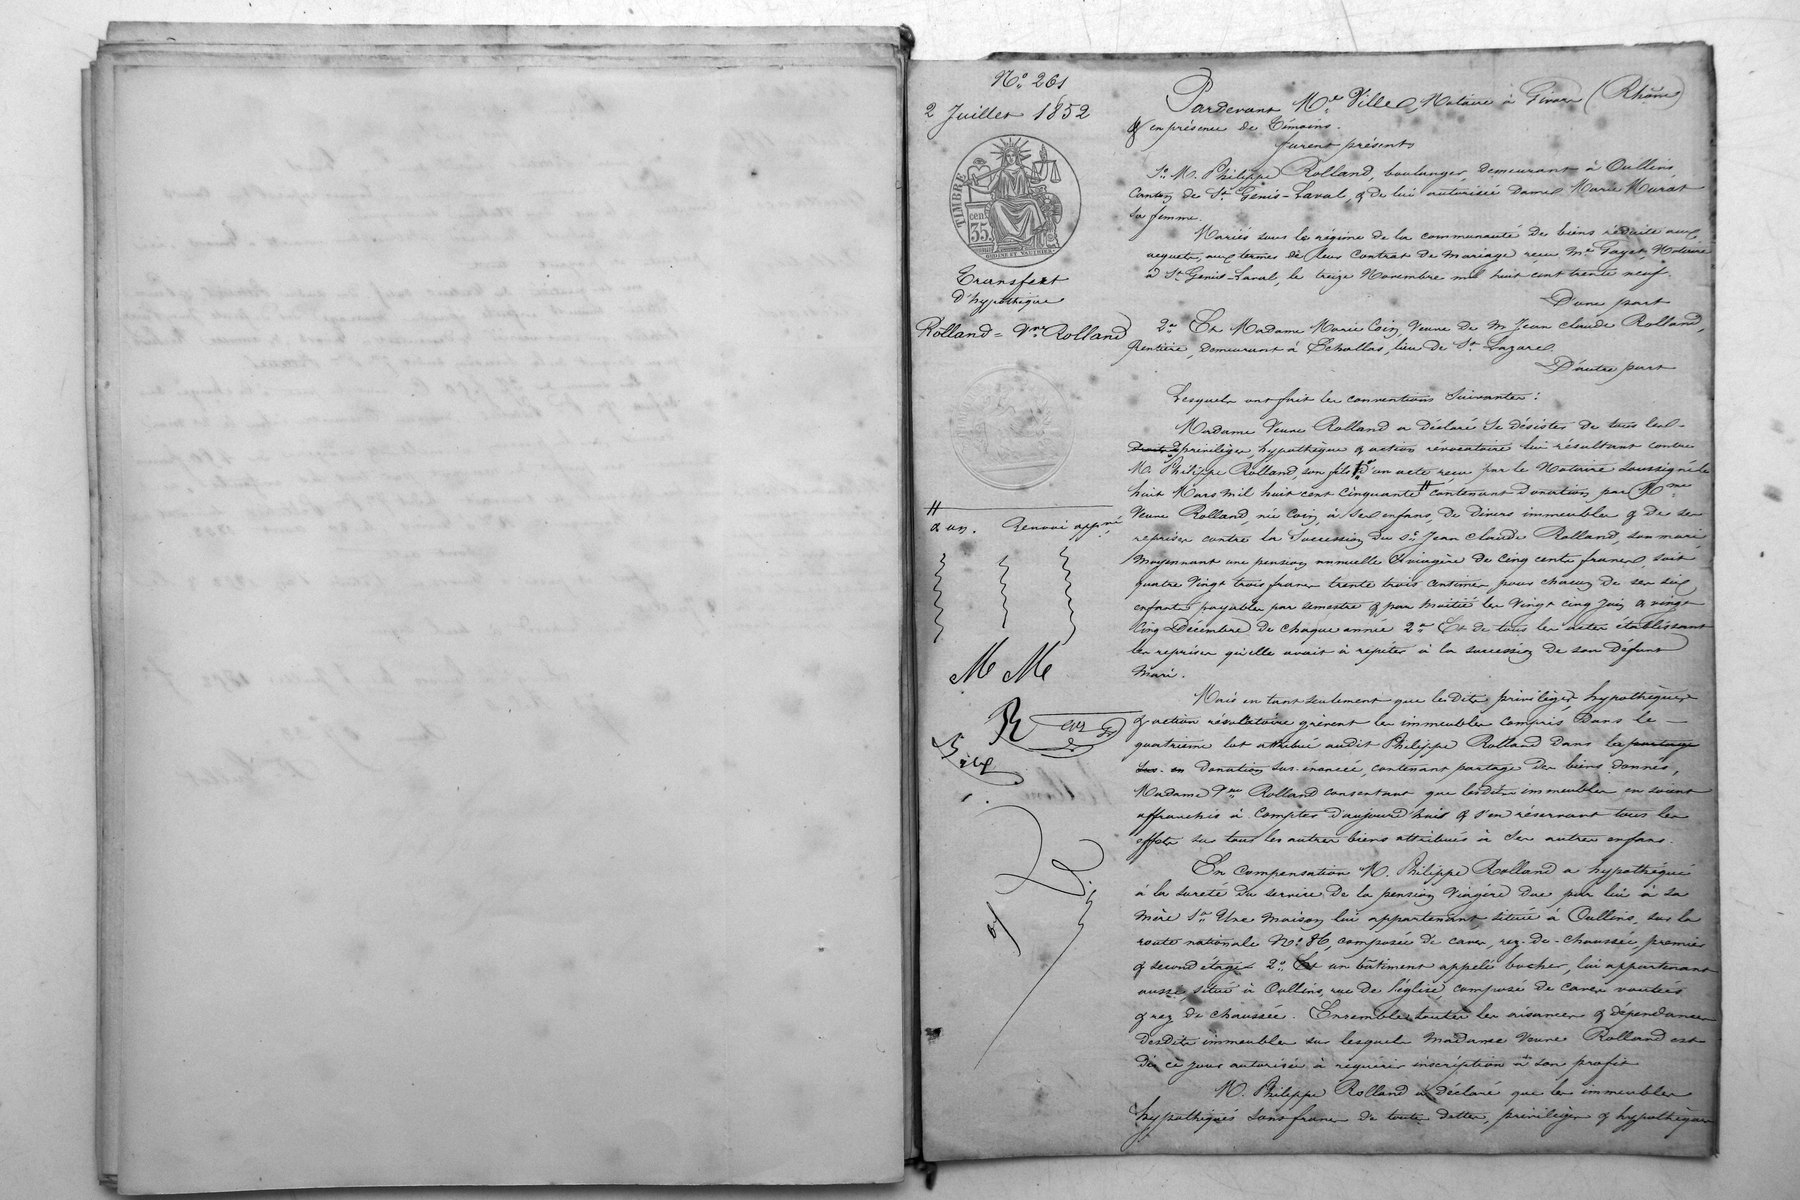 N.º 261
2 Juillet 1852
TIMBRE
35 cent
Transfert
d'hypothèque
Rolland = Vve Rolland
# & un. Renvoi appvé
M M
R
Pardevant Me Ville, Notaire à Givors (Rhône)
& en présence de Témoins.
furent présents
1º M. Philippe Rolland, boulanger, demeurant à Oullins,
Canton de St Genis-Laval, & de lui autorisée dame Marie Murat
sa femme.
Mariés sous le régime de la communauté de biens réduite aux
acquets, aux termes de leur Contrat de Mariage reçu Me Gayet, Notaire
à St Genis-Laval, le treize Novembre mil huit cent trente neuf.
D'une part
2º Et Madame Marie Coin, Veuve de M Jean Claude Rolland,
Rentière, demeurant à Echallas, lieu de St Lazare.
D'autre part
Lesquels ont fait les conventions suivantes :
Madame Veuve Rolland a déclaré se désister de tous les
droits & privilèges, hypothèque & action révocatoire lui résultant contre
M. Philippe Rolland, son fils 1º d'un acte reçu par le Notaire soussigné le
huit Mars mil huit cent cinquante # contenant donation par Mme
Veuve Rolland, née Coin, à ses enfans, de divers immeubles & de ses
reprises contre la Succession du Sr Jean Claude Rolland, son mari
Moyennant une pension annuelle & viagère de Cinq cents francs, soit
quatre Vingt trois francs trente trois centimes pour chacun de ses six
enfants payable par semestre & par moitié les Vingt cinq Juin & vingt
Cinq Décembre de chaque année 2º Et de tous les actes établissant
les reprises qu'elle avait à répéter à la succession de son défunt
Mari.
Mais en tant seulement que lesdits privilèges, hypothèques
& action révocatoire grèvent les immeubles compris dans le
quatrième lot attribué audit Philippe Rolland dans les partage
sus. en donation sus-énoncée, contenant partage des biens donnés,
Madame Vve Rolland consentant que lesdits immeubles en soient
affranchis à Compter d'aujourd'huit & s'en réservant tous les
effets sur tous les autres biens attribués à ses autres enfans.
En Compensation M. Philippe Rolland a hypothéqué
à la sureté du service de la pension Viagère due par lui à sa
mère 1º Une maison lui appartenant située à Oullins, sur la
route nationale Nº 86, composée de caves, rez-de-chaussée, premier
& second étages 2º Et un bâtiment appelé bucher, lui appartenant
aussi, situé à Oullins, rue de l'église, composé de caves voutées
& rez de chaussée. Ensemble toutes les aisances & dépendances
desdits immeubles sur lesquels Madame Veuve Rolland est
dès ce jour autorisée à requérir inscription à son profit
M. Philippe Rolland a déclaré que les immeubles
hypothéqués sont francs de toute dettes, privilèges & hypothèques